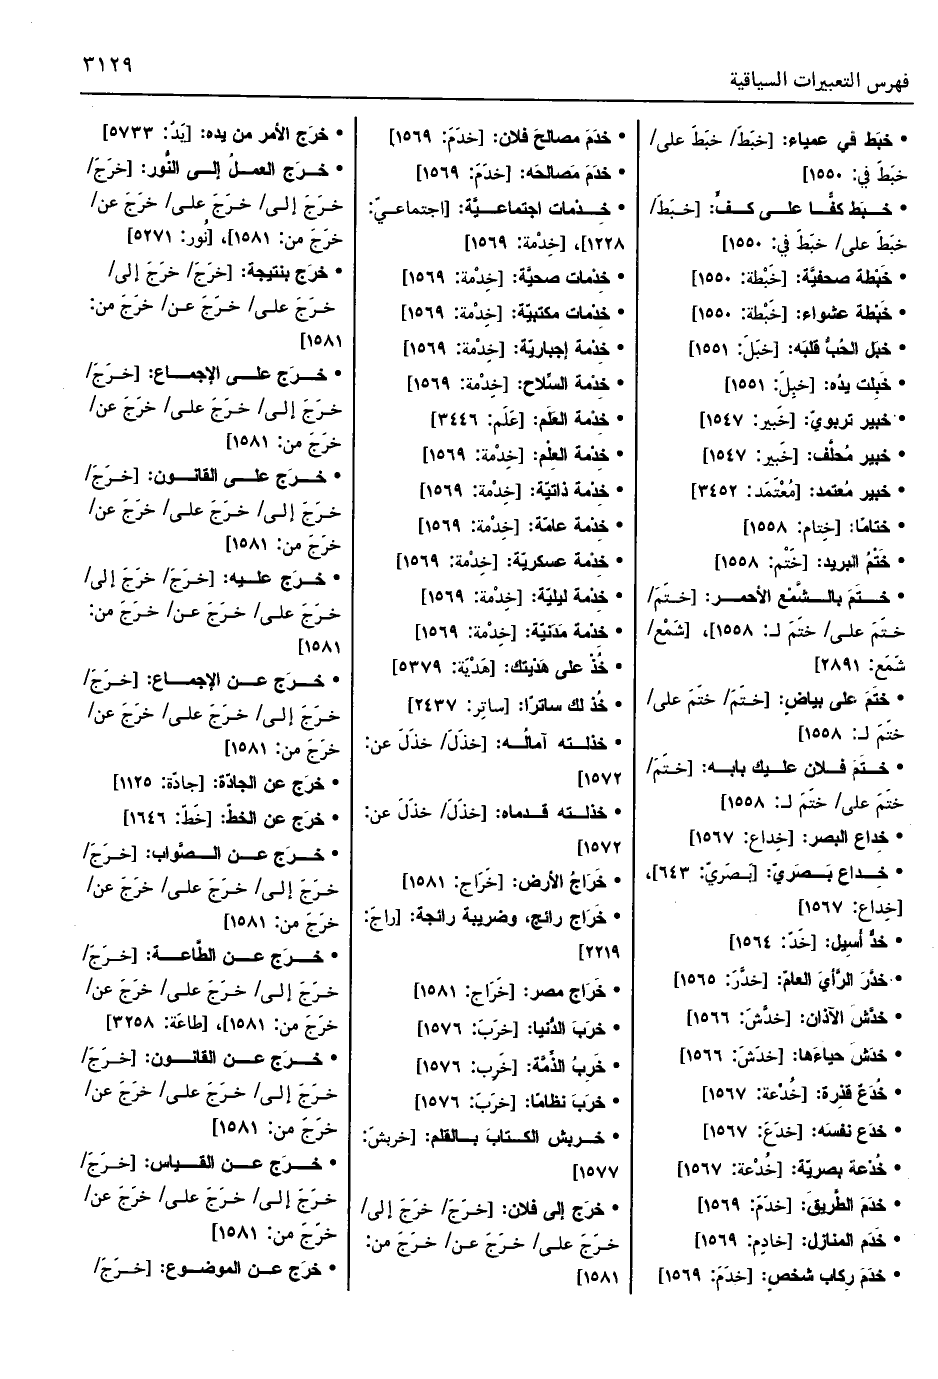 ٣١٢٩
فهرس التعبيرات السياقية
• خبَط في عمياء: [خبَطَ/ خبَطَ على/
خبَطَ في: ١٥٥٠]
• خبَط كفًّا على كفّ: [خبَطَ/
خبَطَ على/ خبَطَ في: ١٥٥٠]
• خَبْطة صحفيّة: [خَبْطة: ١٥٥٠]
• خَبْطة عشواء: [خَبْطة: ١٥٥٠]
• خبَل الحُبُّ قلبَه: [خبَلَ: ١٥٥١]
• خَبِلت يدُه: [خبِلَ: ١٥٥١]
• خبير تربويّ: [خَبير: ١٥٤٧]
• خبير مُحلَّف: [خَبير: ١٥٤٧]
• خبير مُعتمد: [مُعْتَمَد: ٣٤٥٢]
• ختامًا: [خِتام: ١٥٥٨]
• خَتْمُ البريد: [خَتْم: ١٥٥٨]
• ختَمَ بالشَّمْع الأحمر: [ختَمَ/
ختَمَ على/ ختَمَ لـ: ١٥٥٨]، [شَمْع/
شَمَع: ٢٨٩١]
• ختَمَ على بياض: [ختَمَ/ ختَمَ على/
ختَمَ لـ: ١٥٥٨]
• ختَمَ فلان عليك بابه: [ختَمَ/
ختَمَ على/ ختَمَ لـ: ١٥٥٨]
• خداع البصر: [خِداع: ١٥٦٧]
• خداع بَصَريّ: [بَصَريّ: ٦٤٣]،
[خِداع: ١٥٦٧]
• خدٌّ أسيل: [خَدّ: ١٥٦٤]
• خدَّرَ الرَّأيَ العامّ: [خدَّرَ: ١٥٦٥]
• خدَّشَ الآذان: [خدَّشَ: ١٥٦٦]
• خدَشَ حياءَها: [خدَشَ: ١٥٦٦]
• خُدَعٌ قذرة: [خُدْعة: ١٥٦٧]
• خدَع نفسَه: [خدَعَ: ١٥٦٧]
• خُدْعة بصريّة: [خُدْعة: ١٥٦٧]
• خدَمَ الطَّريقَ: [خدَمَ: ١٥٦٩]
• خَدَم المنازل: [خادِم: ١٥٦٩]
• خدَمَ ركاب شخص: [خدَمَ: ١٥٦٩]
• خدَمَ مصالحَ فلان: [خدَمَ: ١٥٦٩]
• خدَمَ مَصالحَه: [خدَمَ: ١٥٦٩]
• خدْمات اجتماعيَّة: [اجتماعيّ:
١٢٢٨]، [خِدْمة: ١٥٦٩]
• خدْمات صحيَّة: [خِدْمة: ١٥٦٩]
• خدْمات مكتبيّة: [خِدْمة: ١٥٦٩]
• خدْمة إجباريّة: [خِدْمة: ١٥٦٩]
• خدْمة السِّلاح: [خِدْمة: ١٥٦٩]
• خدْمة العَلَم: [عَلَم: ٣٤٤٦]
• خدْمة العِلْم: [خِدْمة: ١٥٦٩]
• خدْمة ذاتيّة: [خِدْمة: ١٥٦٩]
• خدْمة عامّة: [خِدْمة: ١٥٦٩]
• خدْمة عسكريّة: [خِدْمة: ١٥٦٩]
• خدْمة ليليّة: [خِدْمة: ١٥٦٩]
• خدْمة مَدَنيّة: [خِدْمة: ١٥٦٩]
• خُذْ على هَدْيتك: [هَدْيَة: ٥٣٧٩]
• خُذ لك ساترًا: [ساتِر: ٢٤٣٧]
• خذلته آمالُه: [خذَلَ/ خذَلَ عن:
١٥٧٢]
• خذلته قدماه: [خذَلَ/ خذَلَ عن:
١٥٧٢]
• خَراجُ الأرض: [خَرَاج: ١٥٨١]
• خَرَاج رائج، وضريبة رائجة: [راجَ:
٢٢١٩]
• خَرَاج مصر: [خَرَاج: ١٥٨١]
• خرَبَ الدُّنيا: [خرَبَ: ١٥٧٦]
• خَرِبُ الذِّمَّة: [خَرِب: ١٥٧٦]
• خرَبَ نظامًا: [خرَبَ: ١٥٧٦]
• خربش الكتابَ بالقلم: [خربشَ:
١٥٧٧]
• خرَج إلى فلان: [خرَجَ/ خرَجَ إلى/
خرَجَ على/ خرَجَ عن/ خرَجَ من:
١٥٨١]
• خرَج الأمر من يده: [يَدٌ: ٥٧٣٣]
• خرَج العملُ إلى النُّور: [خرَجَ/
خرَجَ إلى/ خرَجَ على/ خرَجَ عن/
خرَجَ من: ١٥٨١]، [نُور: ٥٢٧١]
• خرَج بنتيجة: [خرَجَ/ خرَجَ إلى/
خرَجَ على/ خرَجَ عن/ خرَجَ من:
١٥٨١]
• خرَج على الإجماع: [خرَجَ/
خرَجَ إلى/ خرَجَ على/ خرَجَ عن/
خرَجَ من: ١٥٨١]
• خرَج على القانون: [خرَجَ/
خرَجَ إلى/ خرَجَ على/ خرَجَ عن/
خرَجَ من: ١٥٨١]
• خرَج عليه: [خرَجَ/ خرَجَ إلى/
خرَجَ على/ خرَجَ عن/ خرَجَ من:
١٥٨١]
• خرَج عن الإجماع: [خرَجَ/
خرَجَ إلى/ خرَجَ على/ خرَجَ عن/
خرَجَ من: ١٥٨١]
• خرَج عن الجادّة: [جادّة: ١١٢٥]
• خرَج عن الخطّ: [خَطّ: ١٦٤٦]
• خرَج عن الصَّواب: [خرَجَ/
خرَجَ إلى/ خرَجَ على/ خرَجَ عن/
خرَجَ من: ١٥٨١]
• خرَج عن الطَّاعة: [خرَجَ/
خرَجَ إلى/ خرَجَ على/ خرَجَ عن/
خرَجَ من: ١٥٨١]، [طاعَة: ٣٢٥٨]
• خرَج عن القانون: [خرَجَ/
خرَجَ إلى/ خرَجَ على/ خرَجَ عن/
خرَجَ من: ١٥٨١]
• خرَج عن القياس: [خرَجَ/
خرَجَ إلى/ خرَجَ على/ خرَجَ عن/
خرَجَ من: ١٥٨١]
• خرَج عن الموضوع: [خرَجَ/